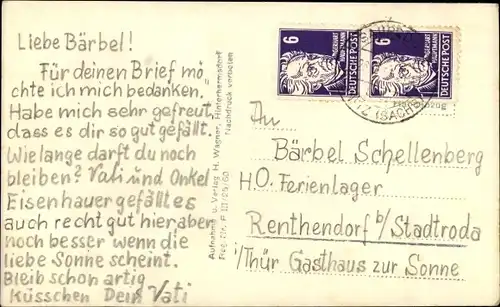 Liebe Bärbel!
Für deinen Brief mö-
chte ich mich bedanken.
Habe mich sehr gefreut,
dass es dir so gut gefällt.
Wie lange darfst du noch
bleiben? Vati und Onkel
Eisenhauer gefällt es
auch recht gut hier aber
noch besser wenn die
liebe Sonne scheint.
Bleib schon artig
Küsschen Dein Vati
Aufnahme u. Verlag H. Wagner, Hinterhermsdorf
Nachdruck verboten
6
GERHART
HAUPTMANN
DEUTSCHE POST
6
GERHART
HAUPTMANN
DEUTSCHE POST
(SACHS)
An
Bärbel Schellenberg
H.O. Ferienlager
Renthendorf b/Stadtroda
i/Thür Gasthaus zur Sonne